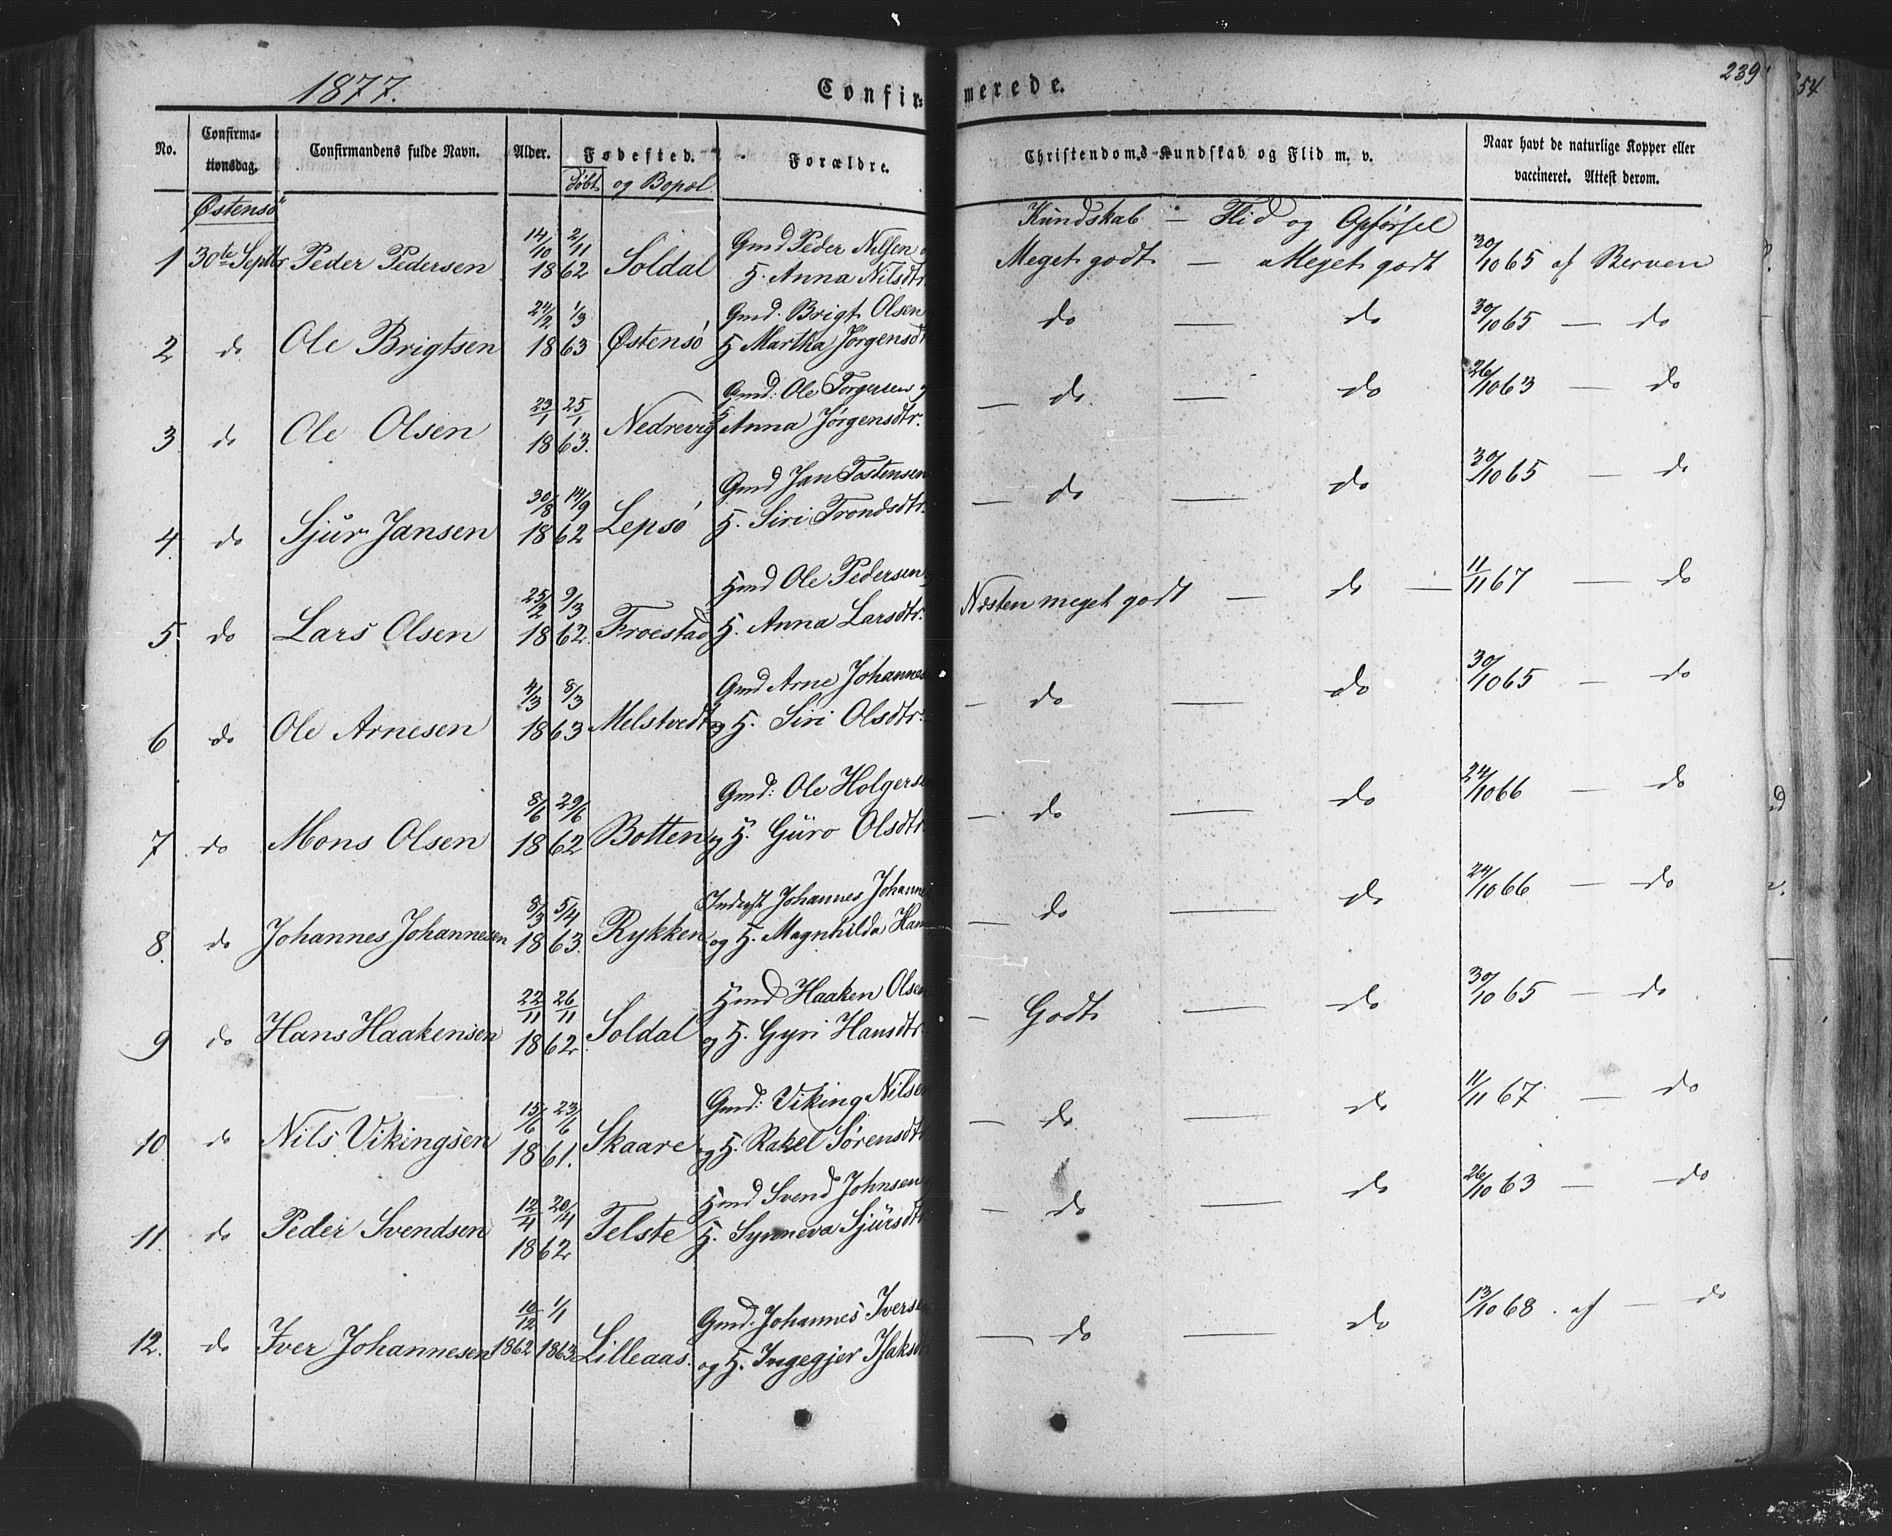 1877.
Confirmerede.
239
54
No.
Confirmationsdag.
Confirmandens fulde Navn.
Alder.
Fødested.
døbt
og Bopæl
Forældre.
Christendoms-Kundskab og Flid m. v.
Naar havt de naturlige Kopper eller vaccineret. Attest derom.
Østensö
Kundskab — Flid og Opførsel
1 30te Septbr Peder Pedersen 14/10 2/11 1862 Soldal Gmd Peder Nilsen og H. Anna Nilsdtr. Meget godt — Meget godt 30/10 65 af Berven
2 do Ole Brigtsen 24/2 1/3 1863 Østensö Gmd. Brigt Olsen H Martha Jörgensdtr do — do 30/10 65 — do
3 do Ole Olsen 23/1 25/1 1863. Nedrevig Gmd: Ole Torgersen og H Anna Jörgensdtr. — do. — do 26/10 63 — do
4. do Sjur Jansen 30/8 14/9 1862 Lepsö Gmd Jan Tostensen H. Siri Trondsdtr. — do — do 30/10 65 — do
5. do Lars Olsen 25/2 9/3 1862. Froestad Hmd Ole Pedersen H. Anna Larsdtr. Næsten meget godt — do — 11/11 67 — do
6 do Ole Arnesen 4/3 8/3 1863 Melstvedt Gmd Arne Johannes og H. Siri Olsdtr. — do — do 30/10 65 — do
7 do Mons Olsen 8/6 29/6 1862 Botten Gmd: Ole Holgerse og H. Guro Olsdtr. — do — do 24/10 66 — do
8. do Johannes Johannesen 8/3 5/4 1863. Rykken Inderst Johannes Johanne og H. Magnhilda Han — do — do 24/10 66 — do
9 do Hans Haakensen 22/11 26/11 1862. Soldal Hmd Haaken Olsen og H. Gyri Hansdtr — Godt — do 30/10 65 — do
10 do Nils Vikingsen 15/6 23/6 1861. Skaare Gmd: Viking Nilsen og H. Rakel Sörensdtr — do — do 11/11 67. — do
11. do Peder Svendsen 12/4 20/4 1862 Telste Hmd Svend Johnsen H. Synneva Sjursdtr — do — do 26/10 63 — do
12. do Iver Johannesen 10/12 1/1 1862 1863. Lilleaas. Gmd. Johannes Iversen og H. Ingegjer Isaksdtr — do — do 13/10 68. af — do